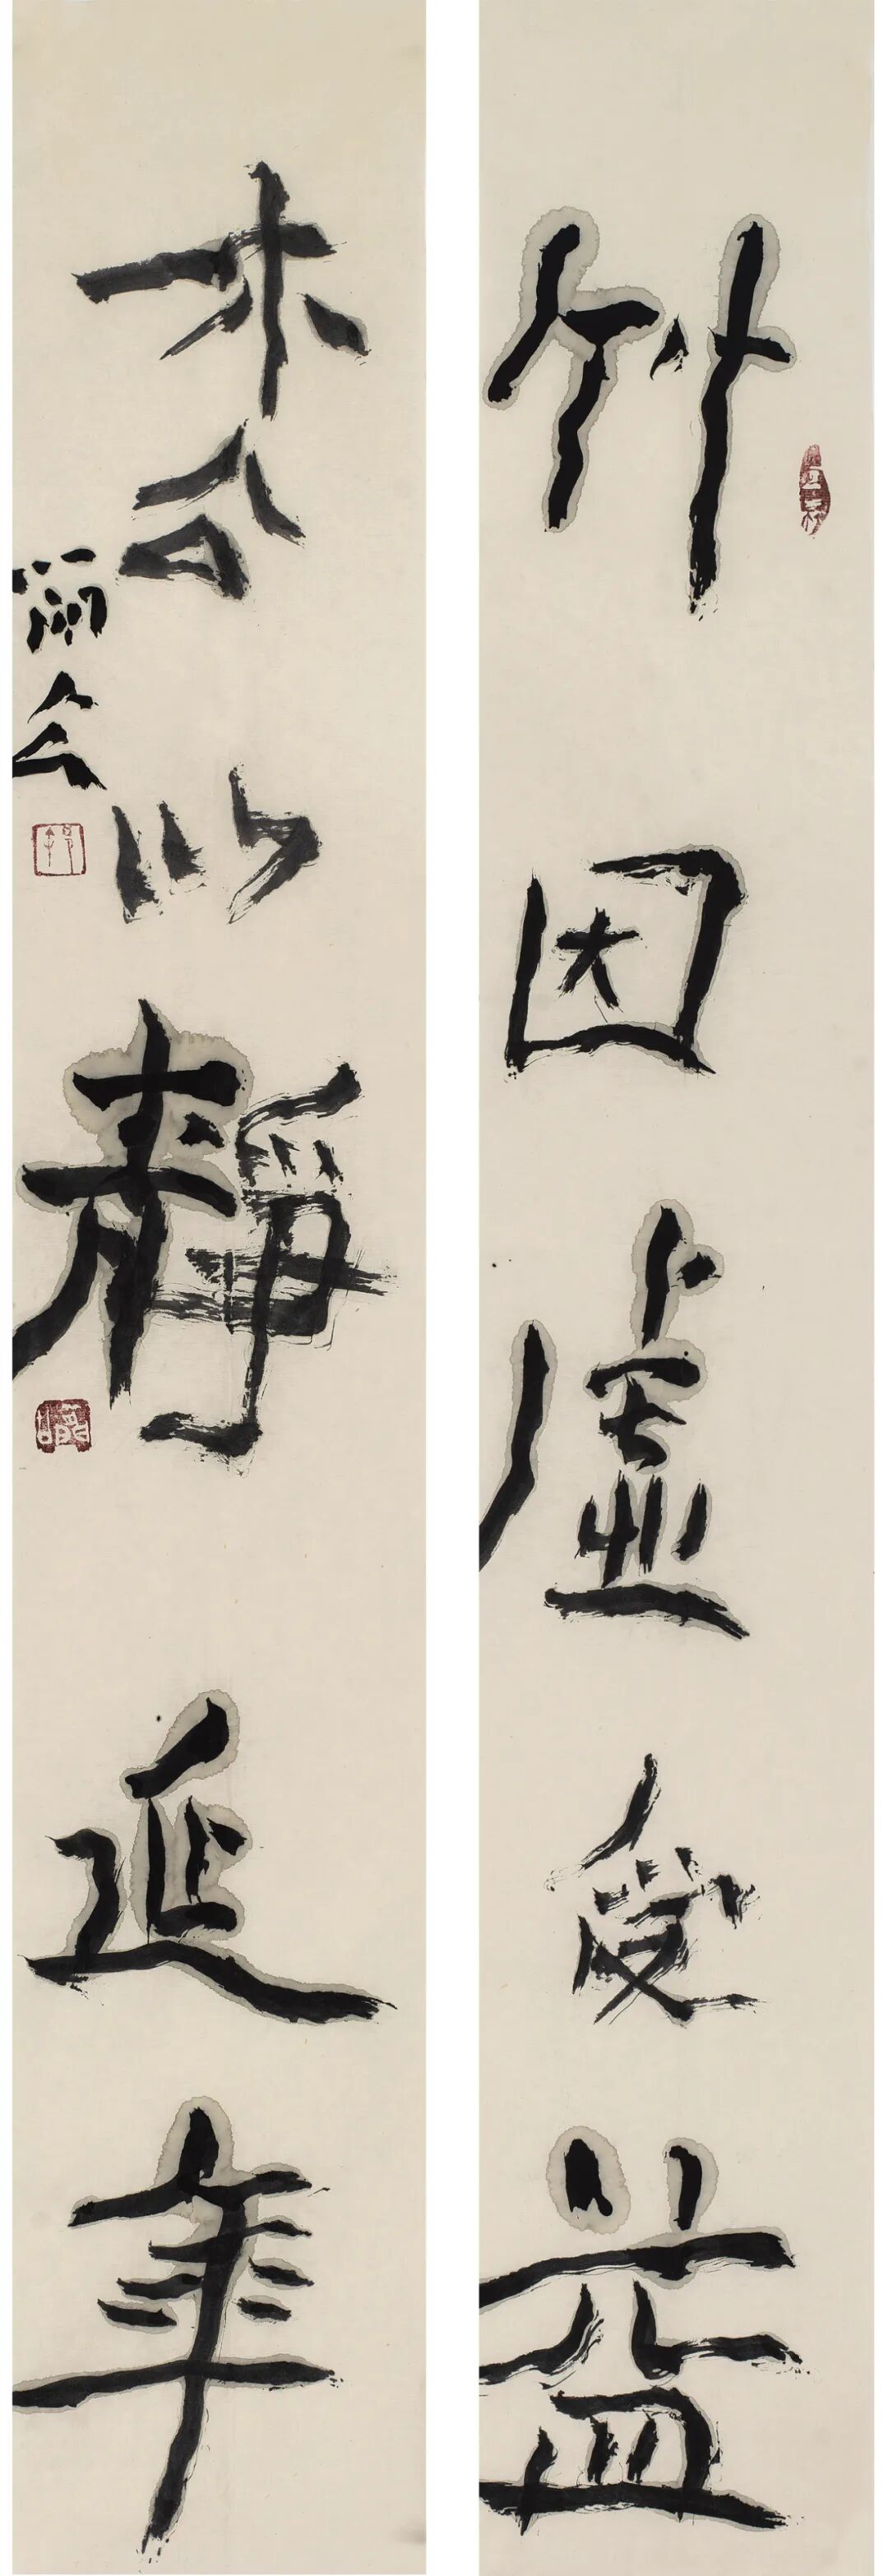 竹因虛受益
松以靜延年